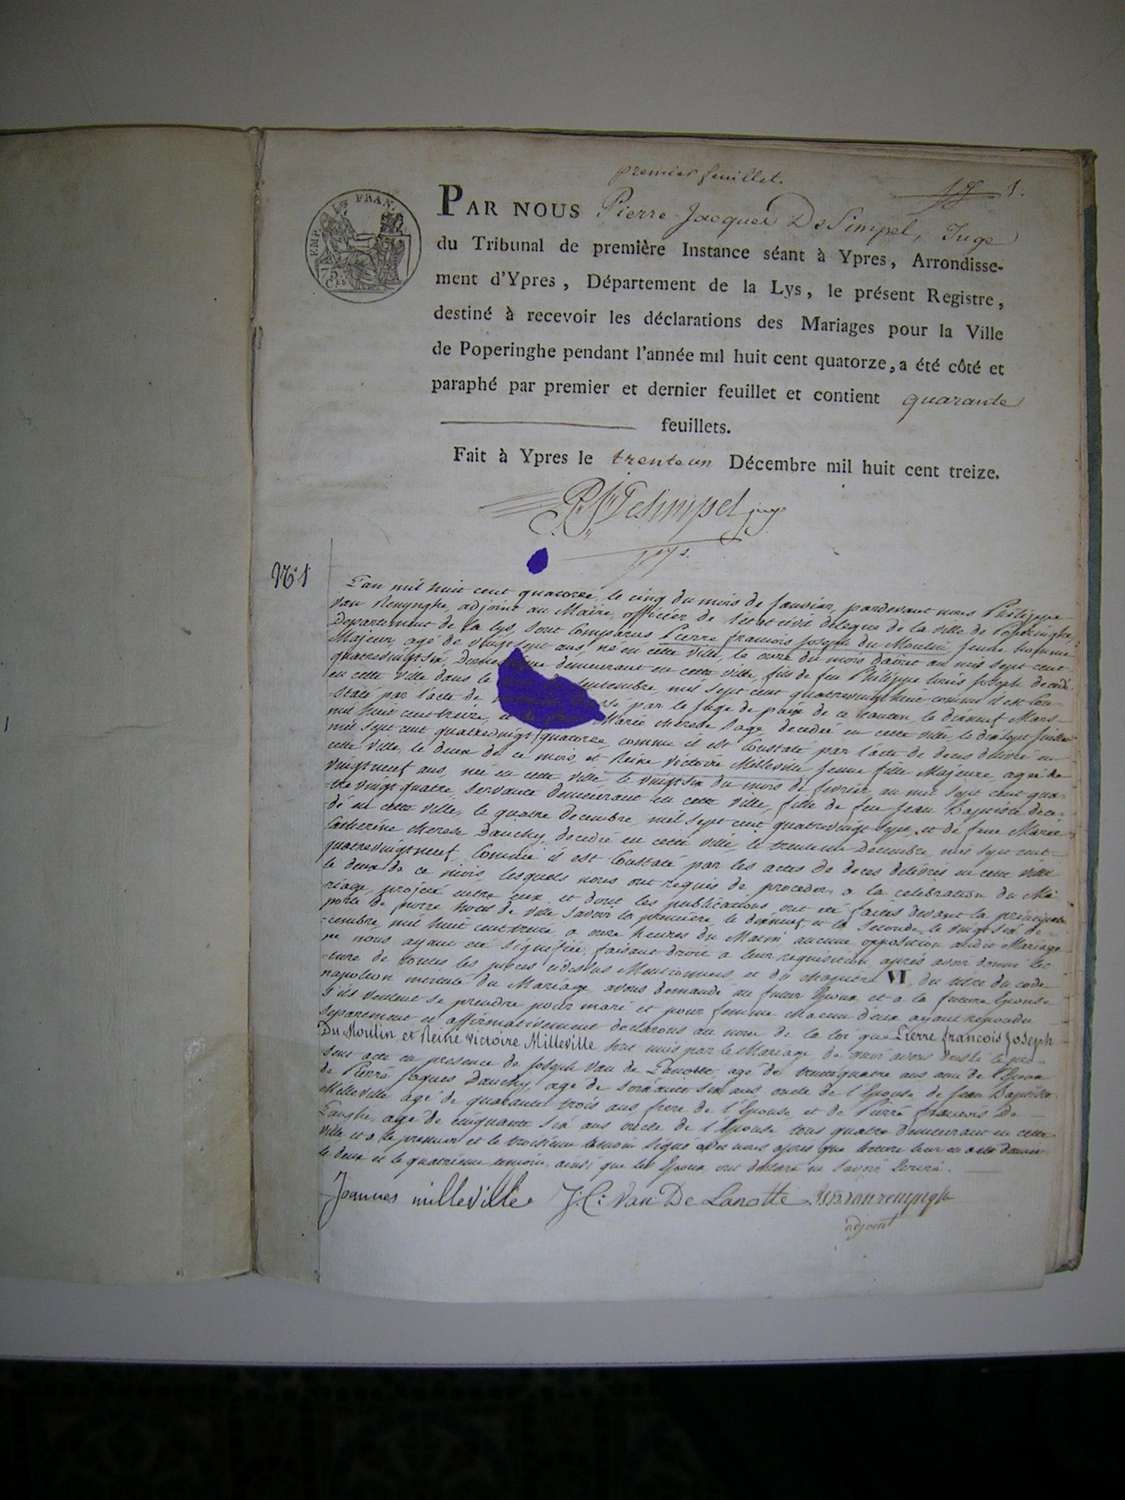 premier feuillet.
1.
EMP. FRAN.
75
PAR NOUS Pierre Jacques De Simpel, Juge
du Tribunal de première Instance séant à Ypres, Arrondisse-
ment d'Ypres, Département de la Lys, le présent Registre,
destiné à recevoir les déclarations des Mariages pour la Ville
de Poperinghe pendant l'année mil huit cent quatorze, a été côté et
paraphé par premier et dernier feuillet et contient quarante
feuillets.
Fait à Ypres le trente un Décembre mil huit cent treize.
N° 1
L'an mil huit cent quatorze, le cinq du mois de Janvier, pardevant nous Philippe
Van Renynghe, adjoint au Maire, officier de l'état civil délégué de la ville de Poperinghe,
Département de la Lys, sont Comparus Pierre francois Joseph du Moulin, Jeune homme
Majeur, agé de vingt sept ans, né en cette ville, le onze du mois d'aout au mil sept cent
quatrevingt six, demeurant en cette ville, fils de feu Philippe Louis Joseph decedé
en cette ville dans le septembre mil sept cent quatrevingt huit comme il est Con-
staté par l'acte de par le Juge de paix de ce canton le dixneuf Mars
mil huit cent treize, et Marie therese Sage decedée en cette ville le dix sept
mil sept cent quatrevingt quatorze, comme il est Constaté par l'acte de deces délivré en
cette ville, le deux de ce mois, et Reine victoire Milleville Jeune fille Majeure agée de
vingt neuf ans, née en cette ville le vingt six du mois de fevrier, au mil sept cent qua-
tre vingt quatre, servante demeurant en cette ville, fille de feu Jean Baptiste dece-
dé en cette ville, le quatre decembre, mil sept cent quatrevingt sept, et de feue Marie
Catherine therese Dauchy, decedée en cette ville, le trente un Décembre, mil sept cent
quatrevingt neuf, Comme il est Constaté par les actes de deces délivrés en cette ville
le deux de ce mois, lesquels nous ont requis de proceder a la celebration du Ma-
riage projeté entre eux, et dont les publications ont été faites devant la principale
porte de notre hotel de ville, Savoir la premiere le dixneuf, et la Seconde, le vingt six de-
cembre, mil huit cent treize a onze heures du Matin, aucune opposition audit Mariage
ne nous ayant été signifiée, faisant droit a leur requisition, après avoir donné lec-
ture de toutes les pieces cidessus Mentionnées, et du chapitre VI, du titre du code
napoleon intitulé du Mariage avons demandé au futur Epoux et a la future Epouse
s'ils veulent se prendre pour mari et pour femme chacun d'eux ayant repondu
separement et affirmativement declarons au nom de la loi que Pierre francois Joseph
Du Moulin, et Reine victoire Milleville sont unis par le Mariage de quoi avons dressé le pre-
sent acte en presence de Joseph Van de Lanotte, agé de trente quatre ans ami de l'Epoux
de Pierre Jaques Dauchy, agé de soixante six ans oncle de l'Epouse, de Jean Baptiste
Milleville agé de quarante trois ans frere de l'Epouse et de Pierre francois De
Langhe, agé de cinquante six ans oncle de l'Epouse tous quatre demeurant en cette
ville et a le premier et le troisieme temoin signé avec nous apres que lecture leur en a été donnée
le deux et le quatrieme temoin, ainsi que les Epoux ont declaré ne savoir Ecrire.
Joannes milleville J. C. Van De Lanotte Ph. B. van renynghe
adjoint